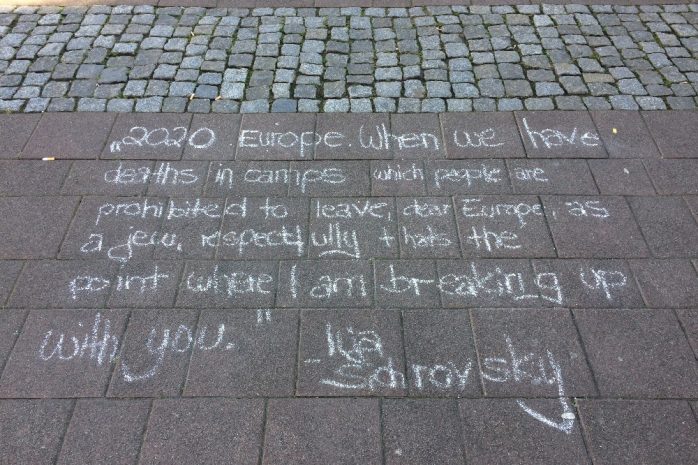 „2020 Europe. When we have
deaths in camps which people are
prohibited to leave, dear Europe, as
a jew, respectfully thats the
point where I am breaking up
with you."
- Iga
Schrovsky